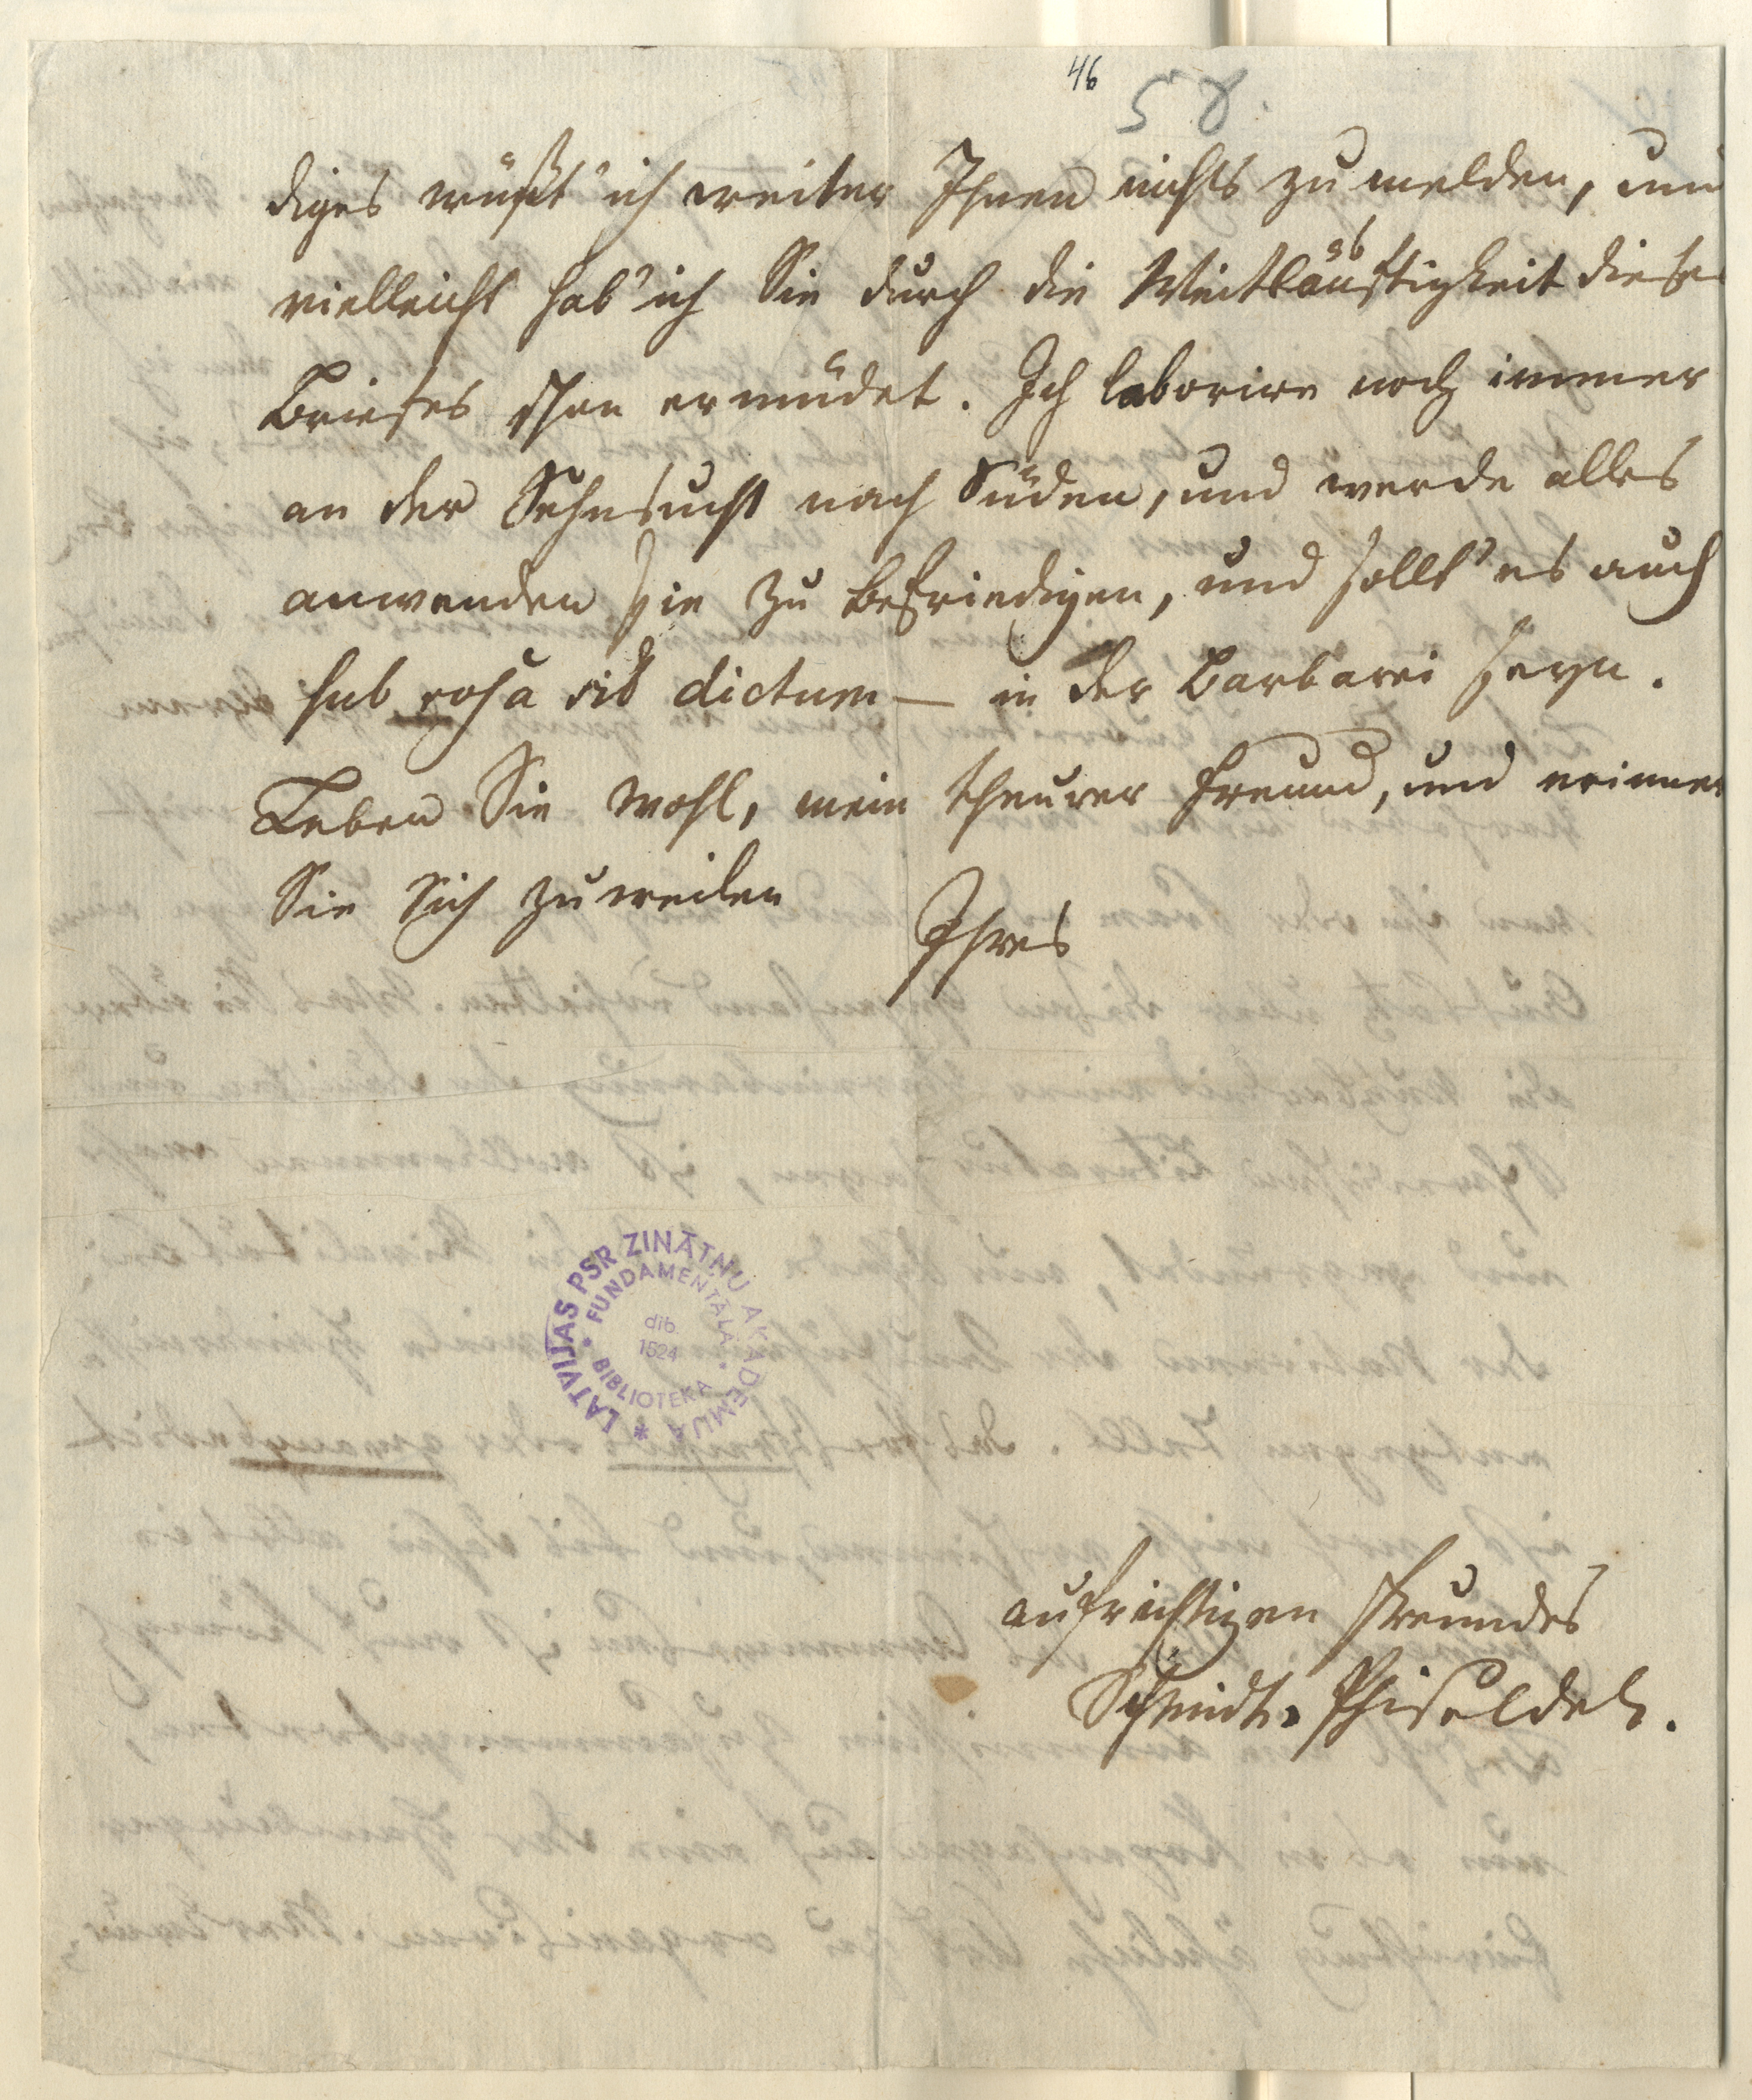 46
58.
diges wüßt' ich weiter Ihnen nichts zu melden, und
vielleicht hab' ich Sie durch die Weitläuftigkeit dieses
Briefes schon ermüdet. Ich laborire noch immer
an der Sehnsucht nach Süden, und werde alles
anwenden sie zu befriedigen, und sollt' es auch
sub rosa sit dictum — in der Barbarei seyn.
Leben Sie wohl, mein theurer Freund, und erinnern
Sie Sich zuweilen
Ihres
LATVIJAS PSR ZINĀTŅU AKADĒMIJA *
FUNDAMENTĀLĀ • BIBLIOTEKA •
dib.
1524
aufrichtigen Freundes
Schmidt-Phiseldek.